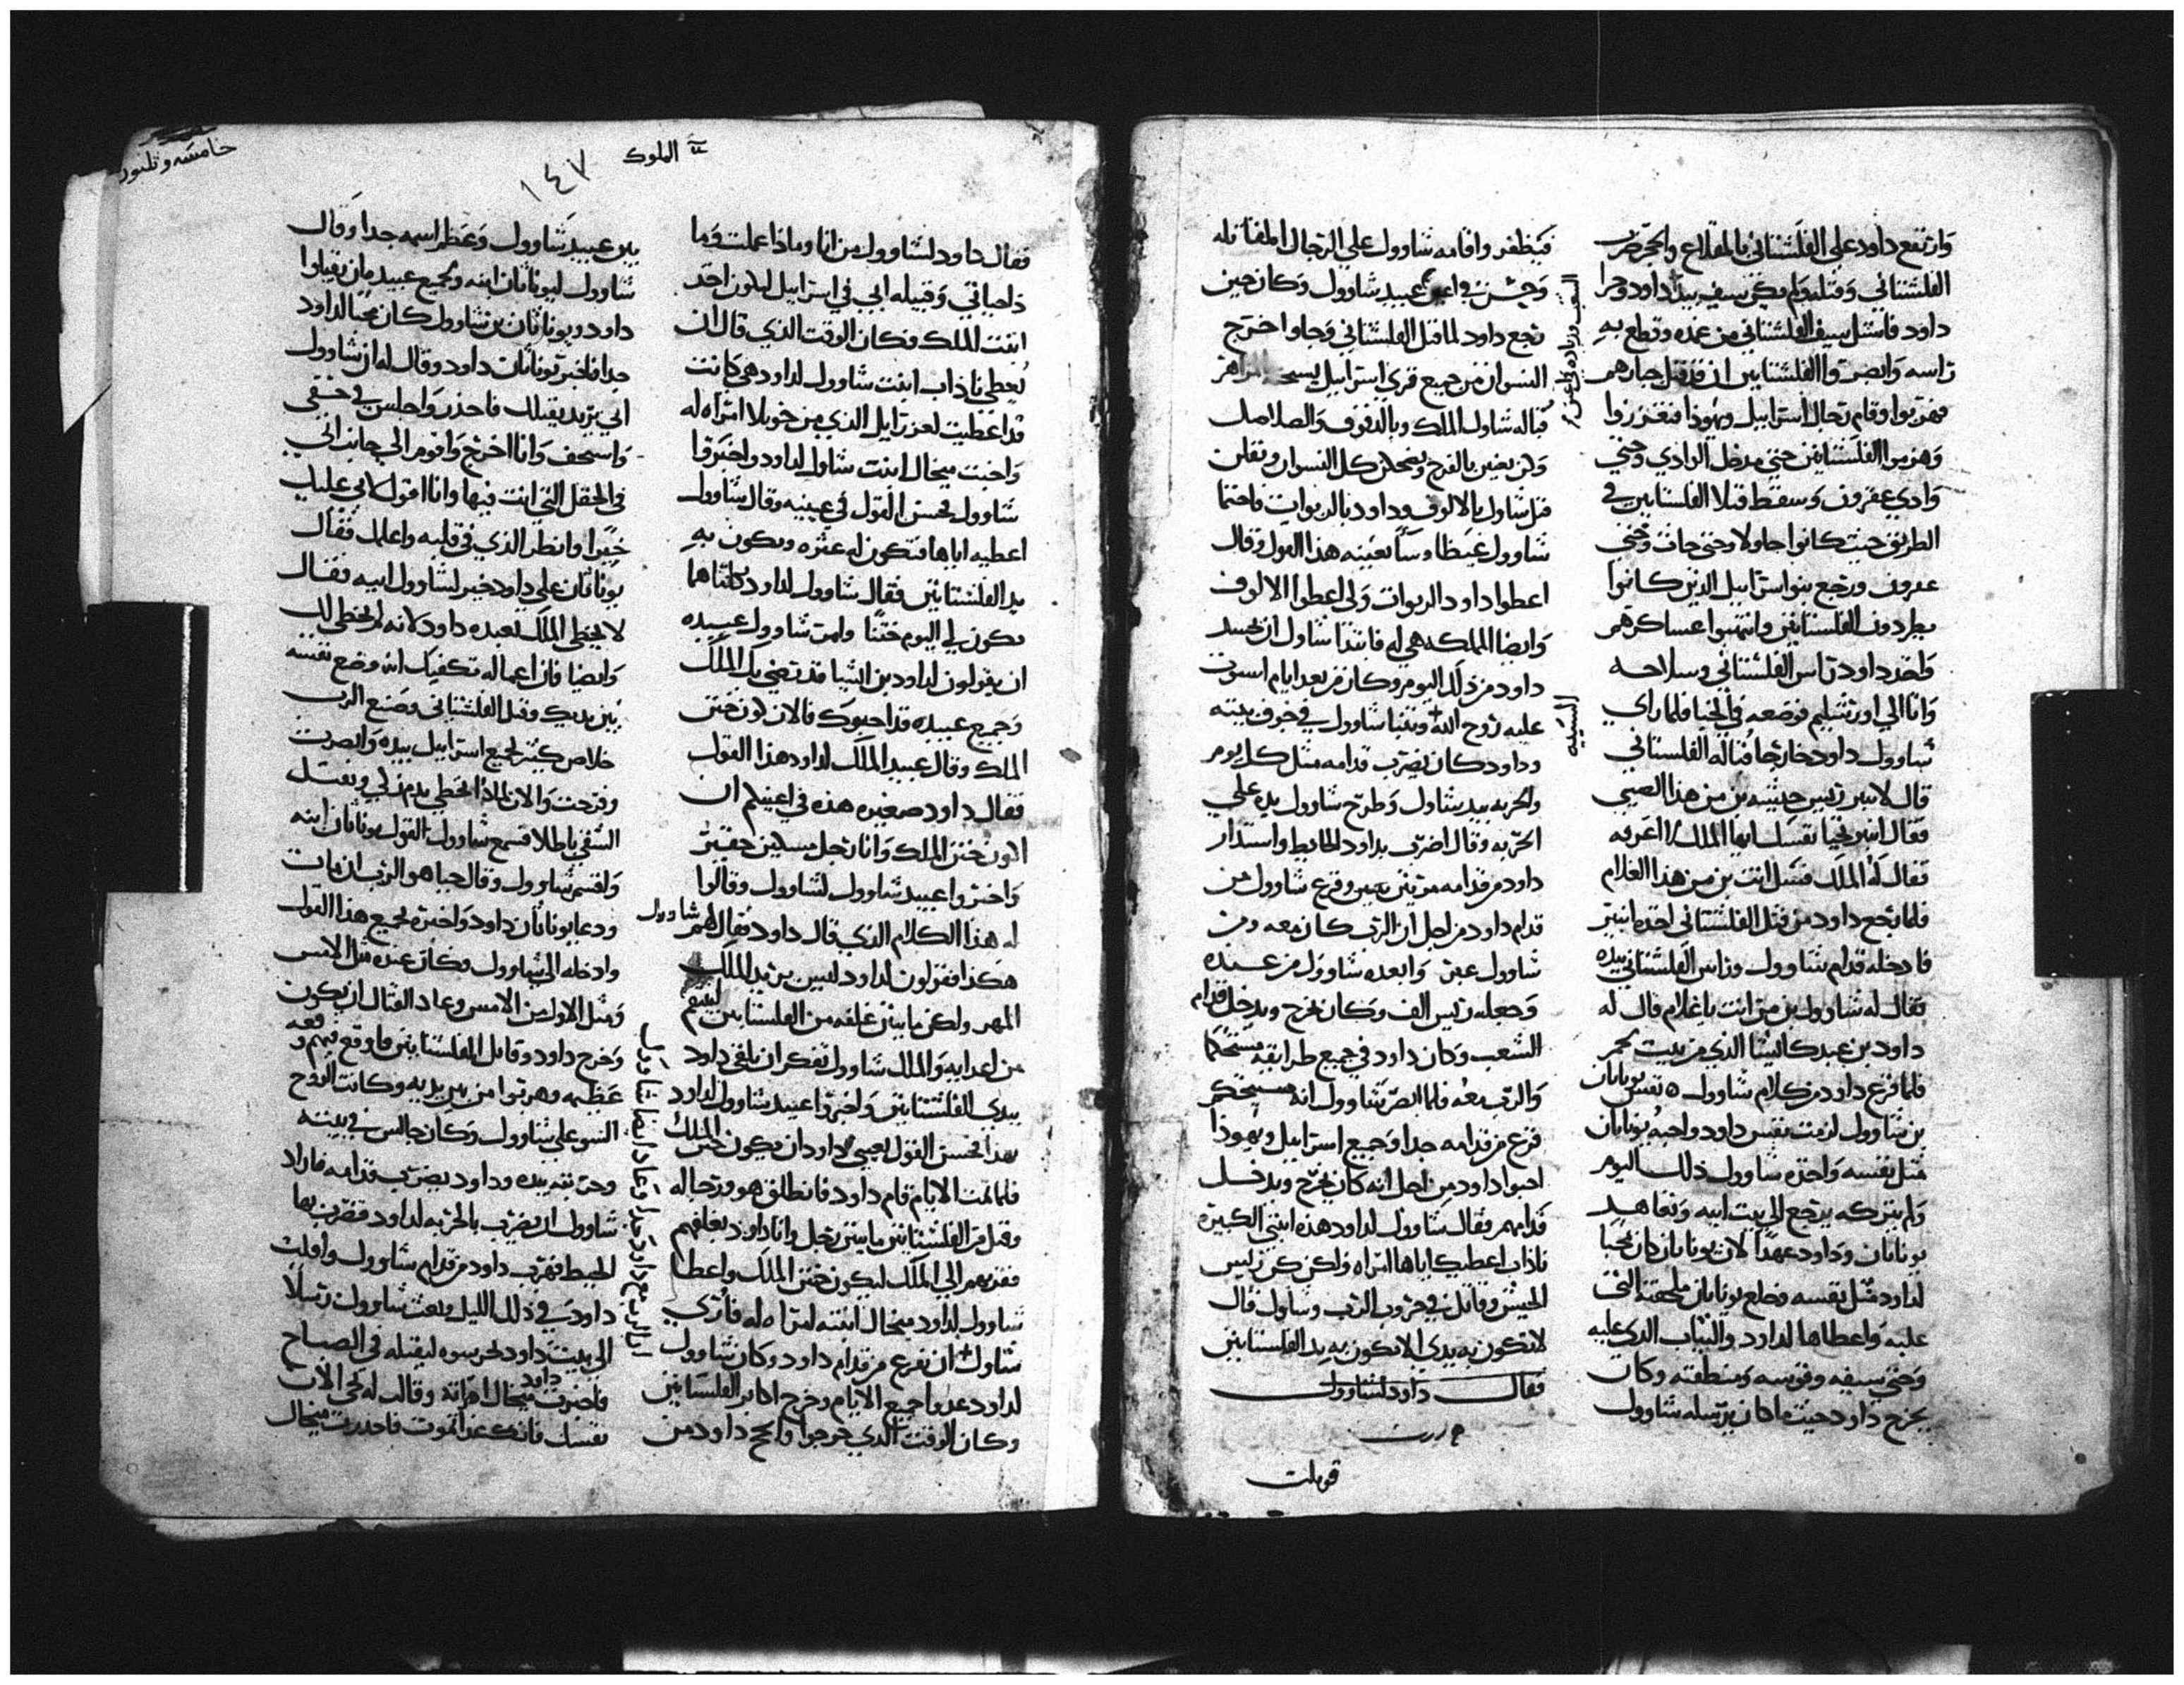 وارتفع داود علي الفلشتاني بالمقلاع والحجر وضرب
الفلشتاني وقتله ولم يكن سيف بيد داود وجرا
داود فاستل سيف الفلشتاني من غمده وقطع به
راسه وابصروا الفلشتانيين ان قد قتل جبارهم
فهربوا وقام رجال اسراييل ويهوذا
وهزموا الفلشتانيين حتي مدخل الوادي وحتي
وادي عقرون وسقط قتلا الفلستانيين في
الطريق حيث كانوا جا ولا وحتي جات وحتي
عقرون ورجع بنو اسراييل الذين كانوا
يطردون الفلستانيين وانتهبوا عساكرهم
واخد داود راس الفلشتاني وسلاحه
واتا الي اورشليم فوضعه في الخبا فلما راي
شاوول داود خارجا قباله الفلستاني
قال لانبير رييس جيشه بن من هذا الصبي
فقال انبير نحيا نفسك ايها الملك ما اعرفه
فقال له الملك فسل انت بن من هذا الغلام
فلما رجع داود من قتل الفلشتاني اخده انبير
فادخله قدام شاوول وراس الفلشتاني بيده
فقال له شاوول بن من انت يا غلام قال له
داود بن عبدك ايشا الذي من بيت لحم
فلما فرغ داود من كلام شاوول ه نفس يوناثان
بن شاوول لزمت نفس داود واحبه يوناثان
مثل نفسه واخده شاوول ذلك اليوم
ولم يتركه يرجع الي بيت ابيه وتعاهد
يوناثان وداود عهدا لان يوناثان كان محبا
لداود مثل نفسه وخلع يوناثان ملحفته التي
عليه واعطاها لداود والثياب الذي عليه
وحتي سيفه وقوسه ومنطقته وكان
يخرج داود حيث ما كان يرسله شاوول
فيظفر واقامه شاوول علي الرجال المقاتله
وحسن في اعين عبيد شاوول وكان حين
رجع داود لما قتل الفلشتاني وجاوا خرج
النسوان من جميع قري اسراييل
قباله شاول الملك وبالدفوف والصلاصل
وكن يغنين بالفرح ويضحكن كل النسوان وتقلن
قتل شاول بالالوف وداود بالربوات فاحتما
شاوول غيظا وسا بعينه هذا القول وقال
اعطوا داود الربوات ولي اعطوا الالوف
وايضا المملكه هي له فابتدا شاول ان يحسد
داود من ذلك اليوم وكان من بعد ايام استوت
عليه روح الله وتنبا شاوول في جوف بيته
وداود كان يضرب قدامه مثل كل يوم
والحربه بيد شاول وطرح شاوول يده علي
الحربه وقال اضرب بداود الحايط واستدار
داود من قدامه مرتين وفزع شاوول من
قدام داود من اجل ان الرب كان معه ومن
شاوول عبر وابعده شاوول من عنده
وجعله رييس الف وكان يخرج ويدخل قدام
الشعب وكان داود في جميع طرايقه مستحكما
والرب معه فلما ابصر شاوول انه مستحكم
فزع من قدامه جدا وجميع اسراييل ويهوذا
احبوا داود من اجل انه كان يخرج ويدخل
قدامهم فقال شاوول لداود هذه ابنتي الكبيره
ناذاب اعطيك اياها امراه ولكن كن رييس
الجيش وقاتل في حروب الرب وشاول قال
لا تكون به يدي الا تكون به يد الفلستانيين
فقال داود لشاوول
قوبلت
الملوك
١٤٧
خامسه وتلتون
فقال داود لشاوول من انا وماذا عملت وما
ذا حياتي وقبيله ابي في اسراييل لاكون اخد
ابنت الملك فكان الوقت الذي قال ان
يعطي ناذاب ابنت شاوول لداود هي كانت
قد اعطيت لعزراييل الذي من خويلا امراه له
واحبت ميخال ابنت شاول لداود واخبروا
شاوول فحسن القول في عينيه وقال شاوول
اعطيه اياها فتكون له عثره ويكون به
يد الفلشتانيين فقال شاوول لداود بكلتاهما
تكون لي اليوم ختنا وامر شاوول عبيده
ان يقولون لداود بن ايشا قد رضي بك الملك
وجميع عبيده قد احبوك فالان كون ختن
الملك وقال عبيد الملك لداود هذا القول
فقال داود صغيره هذه في اعينكم ان
اكون ختن الملك وانا رجل مسكين حقير
واخبروا عبيد شاوول لشاوول وقالوا
له هذا الكلام الذي قال داود فقال لهم شاوول
هكذا فقولون لداود ليس يريد الملك
المهر ولكن مايتين غلفه من الفلستانيين لينتقم
من اعدايه والملك شاوول تفكر ان يلقي داود
بيدي الفلشتانيين واخبروا عبيد شاوول لداود
بهذا فحسن القول بعيني داود ان يكون ختن الملك
فلما تمت الايام قام داود فانطلق هو ورجاله
وقتل من الفلشتانيين مايتين رجل واتا داود بغلفهم
فقربهم الي الملك ليكون ختن الملك واعطا
شاوول لداود ميخال ابنته امراه له
شاول ان يفزع من قدام داود وكان شاوول
لداود عدوا جميع الايام وخرج اكابر الفلستانيين
وكان الوقت الذي خرجوا وانجح داود من
بين عبيد شاوول وعظم اسمه جدا وقال
شاوول ليوناثان ابنه ولجميع عبيده بان يقتلوا
داود ويوناثان بن شاوول كان محبا لداود
جدا فاخبر يوناثان داود وقال له ان شاوول
ابي يريد يقتلك فاحذر واجلس في خفي
واستخف وانا اخرج واقوم الي جانب ابي
في الحقل التي انت فيها وانا اقول لابي عليك
خيرا وانظر الذي في قلبه واعلمك فقال
يوناثان علي داود خير لشاوول ابيه فقال
لا يخطي الملك بعبده داود لانه لم يخطي لك
وايضا فان اعماله تكفيك انه وضع نفسه
بين يديك وقتل الفلشتاني وصنع الرب
خلاص كبير لجميع اسراييل بيده وابصرت
وفرحت والان لماذا تخطي بدم زكي وتقتل
النقي باطلا فسمع شاوول القول يوناثان ابنه
واقسم شاوول وقال حيا هو الرب ان مات
ودعا يوناثان داود واخبره بجميع هذا القول
وادخله الي شاوول وكان عنده مثل الامس
ومثل الاول من الامس وعاد القتال ان يكون
وخرج داود وقاتل الفلشتانيين فاوقع فيهم وقعه
عظيمه وهربوا من بين يديه وكانت الروح
السو علي شاوول وكان جالس في بيته
وحربته بيده وداود يضرب قدامه فاراد
شاوول ان يضرب بالحربه لداود فضرب بها
الحيط فهرب داود من قدام شاوول وافلت
داود في ذلك الليل وبعث شاوول رسلا
الي بيت داود لحرسوه ليقتله في الصباح
فاخبرت داود ميخال امراته وقالت له نجي الان
نفسك فانك غدا تموت فاحدرت ميخال